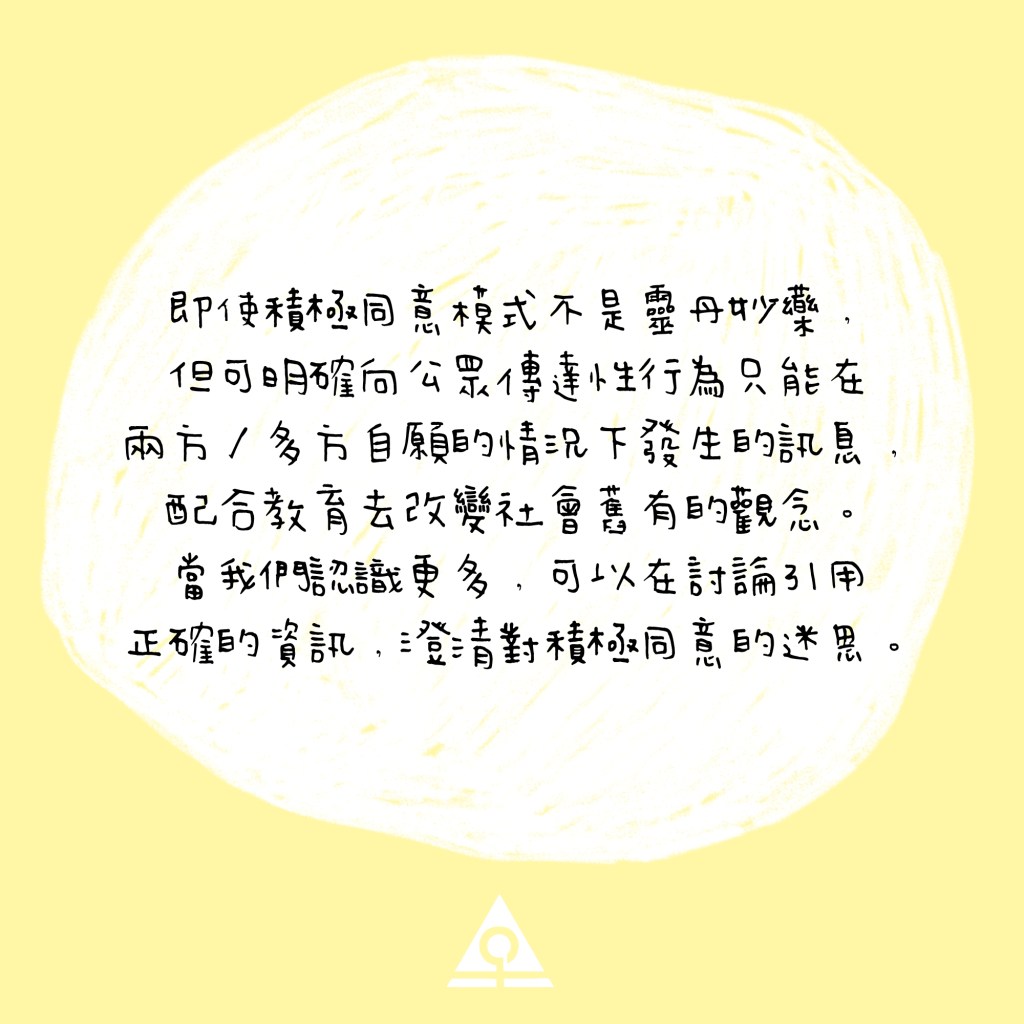 即使積極同意模式不是靈丹妙藥，
但可明確向公眾傳達性行為只能在
兩方/多方自願的情況下發生的訊息，
配合教育去改變社會舊有的觀念。
當我們認識更多，可以在討論引用
正確的資訊，澄清對積極同意的迷思。